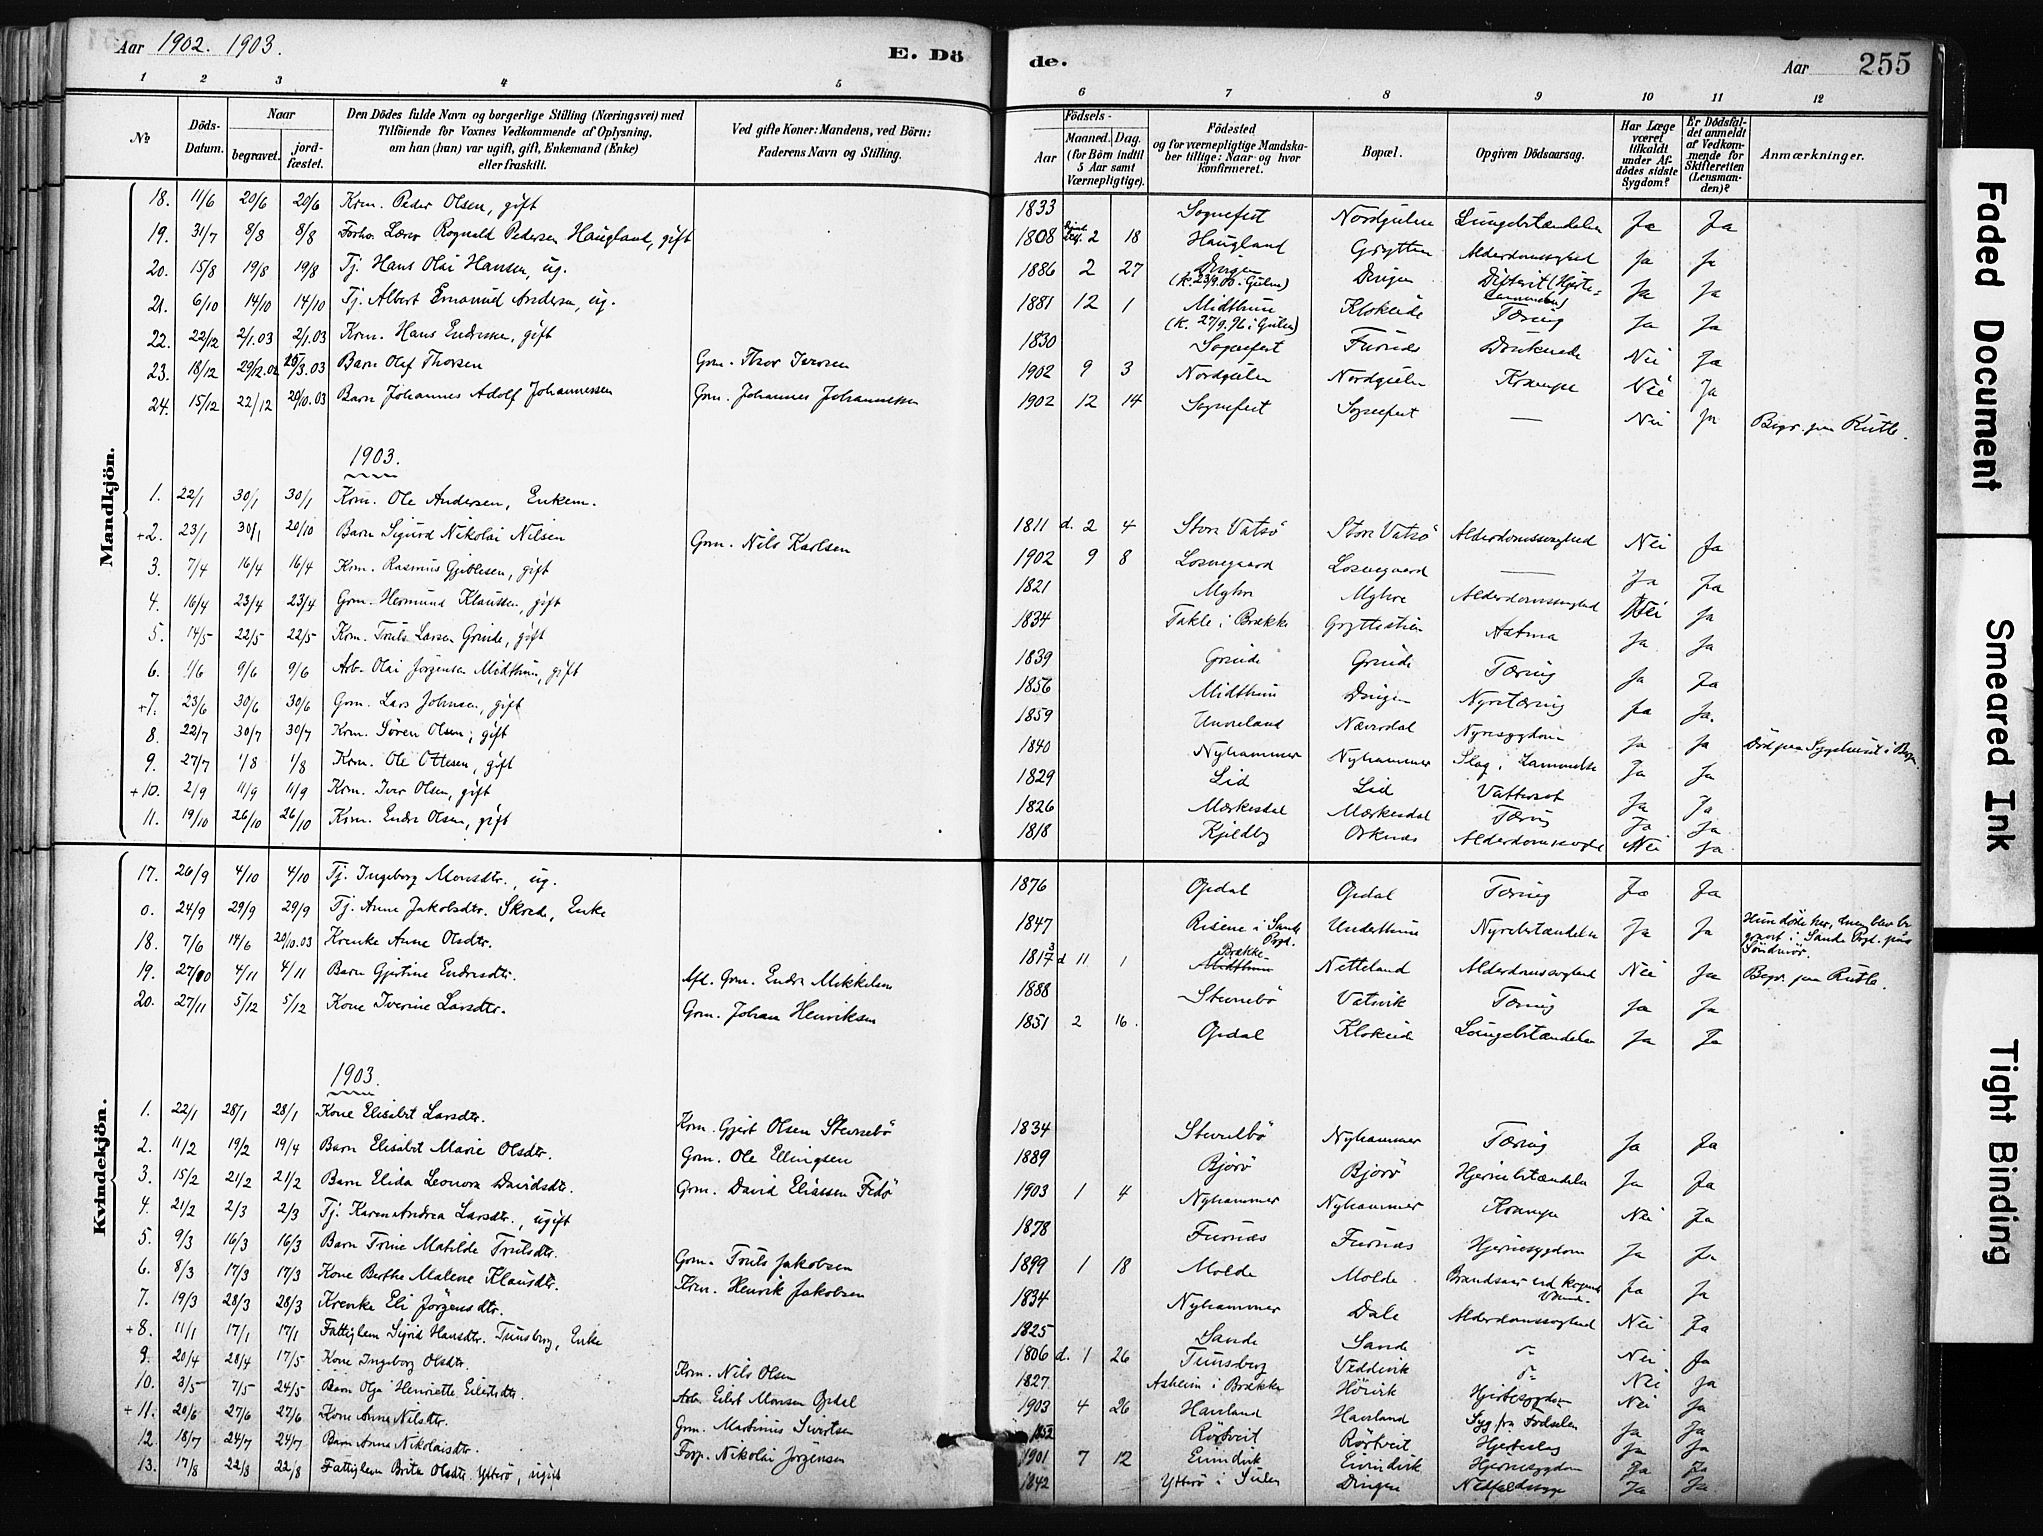 Aar 1902. 1903.
E. Dö
de.
Aar
255
1 2 3 4 5 6 7 8 9 10 11 12
No
Döds-Datum.
Naar
begravet.
jord-fæstet.
Den Dödes fulde Navn og borgerlige Stilling (Næringsvei) med
Tilföiende for Voxnes Vedkommende af Oplysning,
om han (hun) var ugift, gift, Enkemand (Enke)
eller fraskilt.
Ved gifte Koner: Mandens, ved Börn:
Faderens Navn og Stilling.
Födsels-
Aar
Maaned. Dag.
(for Börn indtil
5 Aar samt
Værnepligtige).
Födested
og for værnepligtige Mandska-
ber tillige: Naar og hvor
konfirmeret.
Bopæl.
Opgiven Dödsaarsag.
Har Læge
været
tilkaldt
under Af-
dödes sidste
Sygdom?
Er Dödsfal-
det anmeldt
af Vedkom-
mende for
Skifteretten
(Lensman-
den)?
Anmærkninger.
Mandkjön.
18. 11/6 20/6 20/6 Krm. Peder Olsen, gift 1833 Sognefest Nordgulen Lungebetændelse Ja Ja
19. 31/7 8/8 8/8 Forhv. Lærer Rognald Pedersen Haugland, gift 1808 2 18 Haugland Grytten Alderdomssvaghed Ja Ja
20. 15/8 19/8 19/8 Tj. Hans Olai Hansen, ug. 1886 2 27 Dingen (k. 23/9.00 i Gulen) Dingen Difterit (Hjerte- Ja Ja
21. 6/10 14/10 14/10 Tj. Albert Emanuel Andersen, ug. 1881 12 1 Midthun (k. 27/9.96 i Gulen) Klokeide Tæring Ja Ja
22. 22/12 2/1.03 2/1.03 Krm. Hans Endresen, gift 1830 Sognefest Furnæs Druknede Nei Ja
23. 18/12 29/12.02 /3.03 Barn Olaf Thorsen Grm. Thor Iversen 1902 9 3 Nordgulen Nordgulen Krampe Nei Ja
24. 15/12 22/12 20/10.03 Barn Johannes Adolf Johannessen Grm. Johannes Johannessen 1902 12 14 Sognefest Sognefest — Nei Ja Begr. paa Rutle.
1903.
1. 22/1 30/1 30/1 Krm. Ole Andersen, Enkem. 1811 d. 2 4 Store Vatsö Store Vatsö Alderdomssvaghed Nei Ja
+2. 23/1 30/1 20/10 Barn Sigurd Nikolai Nilsen Grm. Nils Karlsen 1902 9 8 Losnegaard Losnegaard — Ja Ja
3. 7/4 16/4 16/4 Krm. Rasmus Gjeblesen, gift 1821 Myhre Myhre Alderdomssvaghed Nei Ja
4. 16/4 23/4 23/4 Grm. Hermund Klaussen, gift 1834 Takle i Brække Gryttestien Astma Ja Ja
5. 14/5 22/5 22/5 Krm. Truls Larsen Grinde, gift 1839 Grinde Grinde Tæring Ja Ja
6. 1/6 9/6 9/6 Arb. Olai Jørgensen Midthun, gift 1856 Midthun Dingen Nyretæring Ja Ja.
+7. 23/6 30/6 30/6 Grm. Lars Johnsen, gift 1859 Unneland Nævrdal Nyresygdom Ja Ja Död paa Sygehuset i Bergen.
8. 22/7 30/7 30/7 Krm. Sören Olsen, gift 1840 Nyhammer Nyhammer Slag, Lammelse Ja Ja
9. 27/7 1/8 1/8 Krm. Ole Ottesen, gift 1829 Lid Lid Vattersot Ja Ja
+10. 2/9 11/9 11/9 Krm. Iver Olsen, gift 1826 Mærkesdal Mærkesdal Tæring Ja Ja
11. 19/10 26/10 26/10 Krm. Endre Olsen, gift 1818 Kjelleby Oeknes Alderdomssvaghed Nei Ja
Kvindekjön.
17. 26/9 4/10 4/10 Tj. Ingeborg Monsdtr., ug. 1876 Opdal Opdal Tæring Ja Ja
0. 24/9 29/9 29/9 Tj. Anne Jakobsdtr. Skrede, Enke 1847 Risene i Sande Prgd. Underthun Nyrebetændelse Ja Ja Hun döde her, men blev be-
gravet i Sande Prgd. paa
Söndmör.
18. 7/6 14/6 20/10.03 Krenke Anne Olsdtr. 1817 d 11 1 Brække Netteland Alderdomssvaghed Nei Ja Begr. paa Rutle.
19. 27/10 4/11 4/11 Barn Gjertine Endresdtr. Afd. Grm. Endre Mikkelsen 1888 Stevnebö Vatsvik Tæring Ja Ja
20. 27/11 5/12 5/12 Kone Iverine Larsdtr. Grm. Johan Henriksen 1851 2 16. Opdal Klokeide Lungebetændelse Ja Ja
1903.
1. 22/1 28/1 28/1 Kone Elisabet Larsdtr. Krm. Gjert Olsen Stevnebö 1834 Stevnebö Nyhammer Tæring Ja Ja
2. 11/2 19/2 19/4 Barn Elisabet Marie Olsdtr. Grm. Ole Ellingsen 1889 Björö Björö Hjernebetændelse Ja Ja
3. 15/2 21/2 21/2 Barn Elida Leonora Davidsdtr. Grm. David Eliassen Fedö 1903 1 4 Nyhammer Nyhammer Krampe Nei Ja
4. 21/2 2/3 2/3 Tj. Karen Andrea Larsdtr., ugift 1878 Furnæs Furnæs Hjernesygdom Ja Ja
5. 9/3 16/3 16/3 Barn Trine Matilde Trulsdtr. Grm. Truls Jakobsen 1899 1 18 Molde Molde Brandsaar ved kogende Vand. Ja Ja
6. 8/3 17/3 17/3 Kone Berthe Malene Klausdtr. Krm. Henrik Jakobsen 1834 Nyhammer Dale Alderdomssvaghed Nei Ja
7. 19/3 28/3 28/3 Krenke Eli Jörgensdtr. 1825 Sande Sande Nei Ja
+8. 11/1 17/1 17/1 Fattiglem Sigrid Hansdtr. Tunsberg, Enke 1806 d. 1 26 Tunsberg Veddevik Nei Ja
9. 20/4 28/4 17/5 Kone Ingeborg Olsdtr. Krm. Nils Olsen 1827 Asheim i Brække Hörvik Hjertesygdom Nei Ja
10. 3/5 7/5 24/5 Barn Olga Henriette Eilertsdtr. Arb. Eilert Monsen Opdal 1903 4 26 Havland Havland Syg fra Födselen Ja Ja
+11. 20/6 27/6 27/6 Kone Anne Nilsdtr. Grm. Martinus Sivertsen Rörtveit Rörtveit Hjerteslag Ja Ja
12. 18/7 24/7 24/7 Barn Anna Nikolaisdtr. Forp. Nikolai Jörgensen 1901 7 12 Eivindvik Eivindvik Hjernesygdom Ja Ja
13. 17/8 22/8 22/8 Fattiglem Brita Olsdtr. Ytterö, ugift 1842 Ytterö i Sulen Dingen Nedfaldssyge Ja Ja
Faded Document
Smeared Ink
Tight Binding